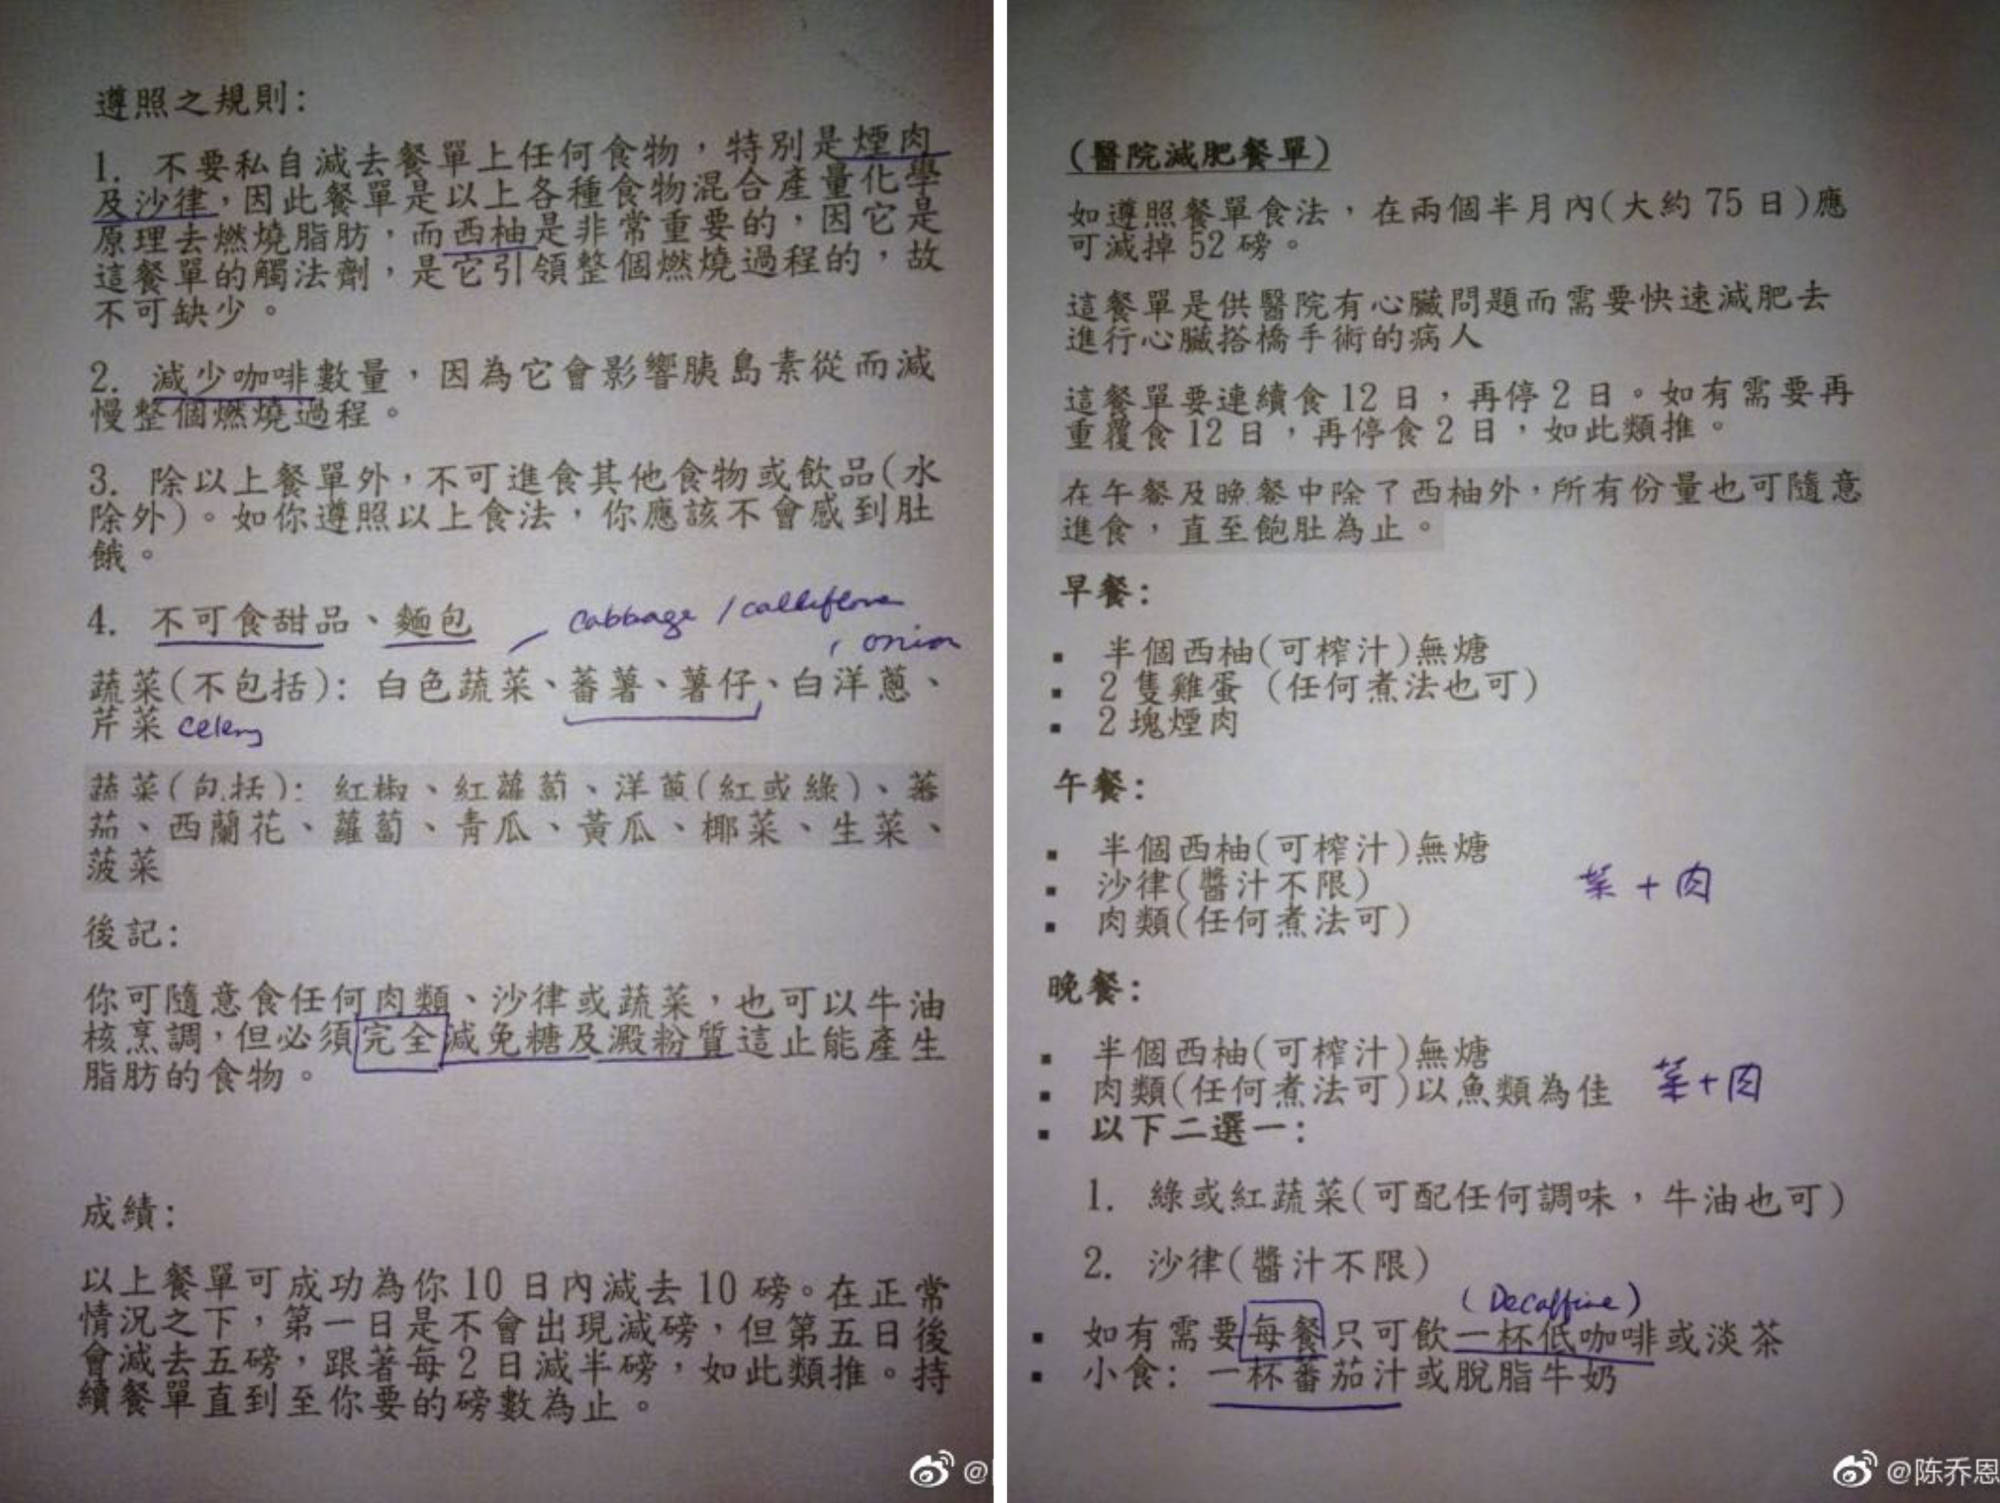 遵照之規則：
1. 不要私自減去餐單上任何食物，特別是煙肉
及沙律，因此餐單是以上各種食物混合產量化學
原理去燃燒脂肪，而西柚是非常重要的，因它是
這餐單的觸法劑，是它引領整個燃燒過程的，故
不可缺少。
2. 減少咖啡數量，因為它會影響胰島素從而減
慢整個燃燒過程。
3. 除以上餐單外，不可進食其他食物或飲品(水
除外)。如你遵照以上食法，你應該不會感到肚
餓。
4. 不可食甜品、麵包
cabbage /
, onion
蔬菜(不包括)：白色蔬菜、蕃薯、薯仔、白洋蔥、
芹菜 celery
蔬菜(包括)：紅椒、紅蘿蔔、洋蔥(紅或綠)、蕃
茄、西蘭花、蘿蔔、青瓜、黃瓜、椰菜、生菜、
菠菜
後記：
你可隨意食任何肉類、沙律或蔬菜，也可以牛油
核烹調，但必須完全減免糖及澱粉質這止能產生
脂肪的食物。
成績：
以上餐單可成功為你10日內減去10磅。在正常
情況之下，第一日是不會出現減磅，但第五日後
會減去五磅，跟著每2日減半磅，如此類推。持
續餐單直到至你要的磅數為止。
@
(醫院減肥餐單)
如遵照餐單食法，在兩個半月內(大約75日)應
可減掉52磅。
這餐單是供醫院有心臟問題而需要快速減肥去
進行心臟搭橋手術的病人
這餐單要連續食12日，再停2日。如有需要再
重覆食12日，再停食2日，如此類推。
在午餐及晚餐中除了西柚外，所有份量也可隨意
進食，直至飽肚為止。
早餐：
▪ 半個西柚(可榨汁)無糖
▪ 2隻雞蛋 (任何煮法也可)
▪ 2塊煙肉
午餐：
▪ 半個西柚(可榨汁)無糖
▪ 沙律(醬汁不限) 菜+肉
▪ 肉類(任何煮法可)
晚餐：
▪ 半個西柚(可榨汁)無糖
▪ 肉類(任何煮法可)以魚類為佳 菜+肉
▪ 以下二選一：
1. 綠或紅蔬菜(可配任何調味，牛油也可)
2. 沙律(醬汁不限)
(Decaffine)
▪ 如有需要每餐只可飲一杯低咖啡或淡茶
▪ 小食：一杯蕃茄汁或脫脂牛奶
@陈乔恩